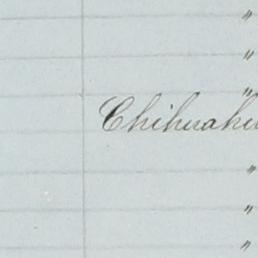 "
"
"
Chihuahu
"
"
"